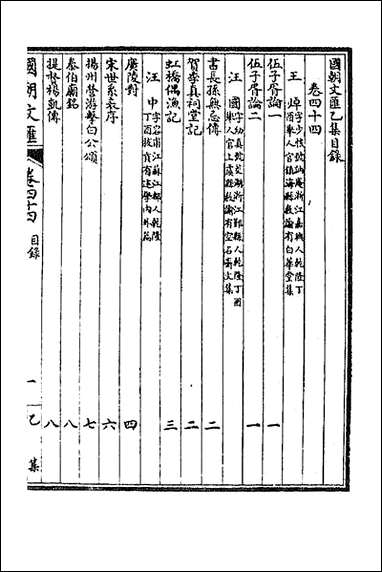 國朝文匯乙集目錄
卷四十四
王焯 字少愷號訥庵浙江嘉興人乾隆丁酉舉人官鎮海縣教諭有白華堂集
伍子胥論一 一
伍子胥論二 一
汪國 字幼真號苾湖浙江鄞縣人乾隆丁酉舉人官上虞縣教諭有空石齋文集
書長孫無忌傳 二
賀季真祠堂記 二
虹橋偶漁記 三
汪中 字容甫江蘇江都人乾隆丁酉拔貢有述學內外篇
廣陵對 四
宋世系表序 六
揚州營游擊白公頌 七
泰伯廟銘 八
提督楊凱傳 八
國朝文匯 卷四十四 目錄 一 乙集